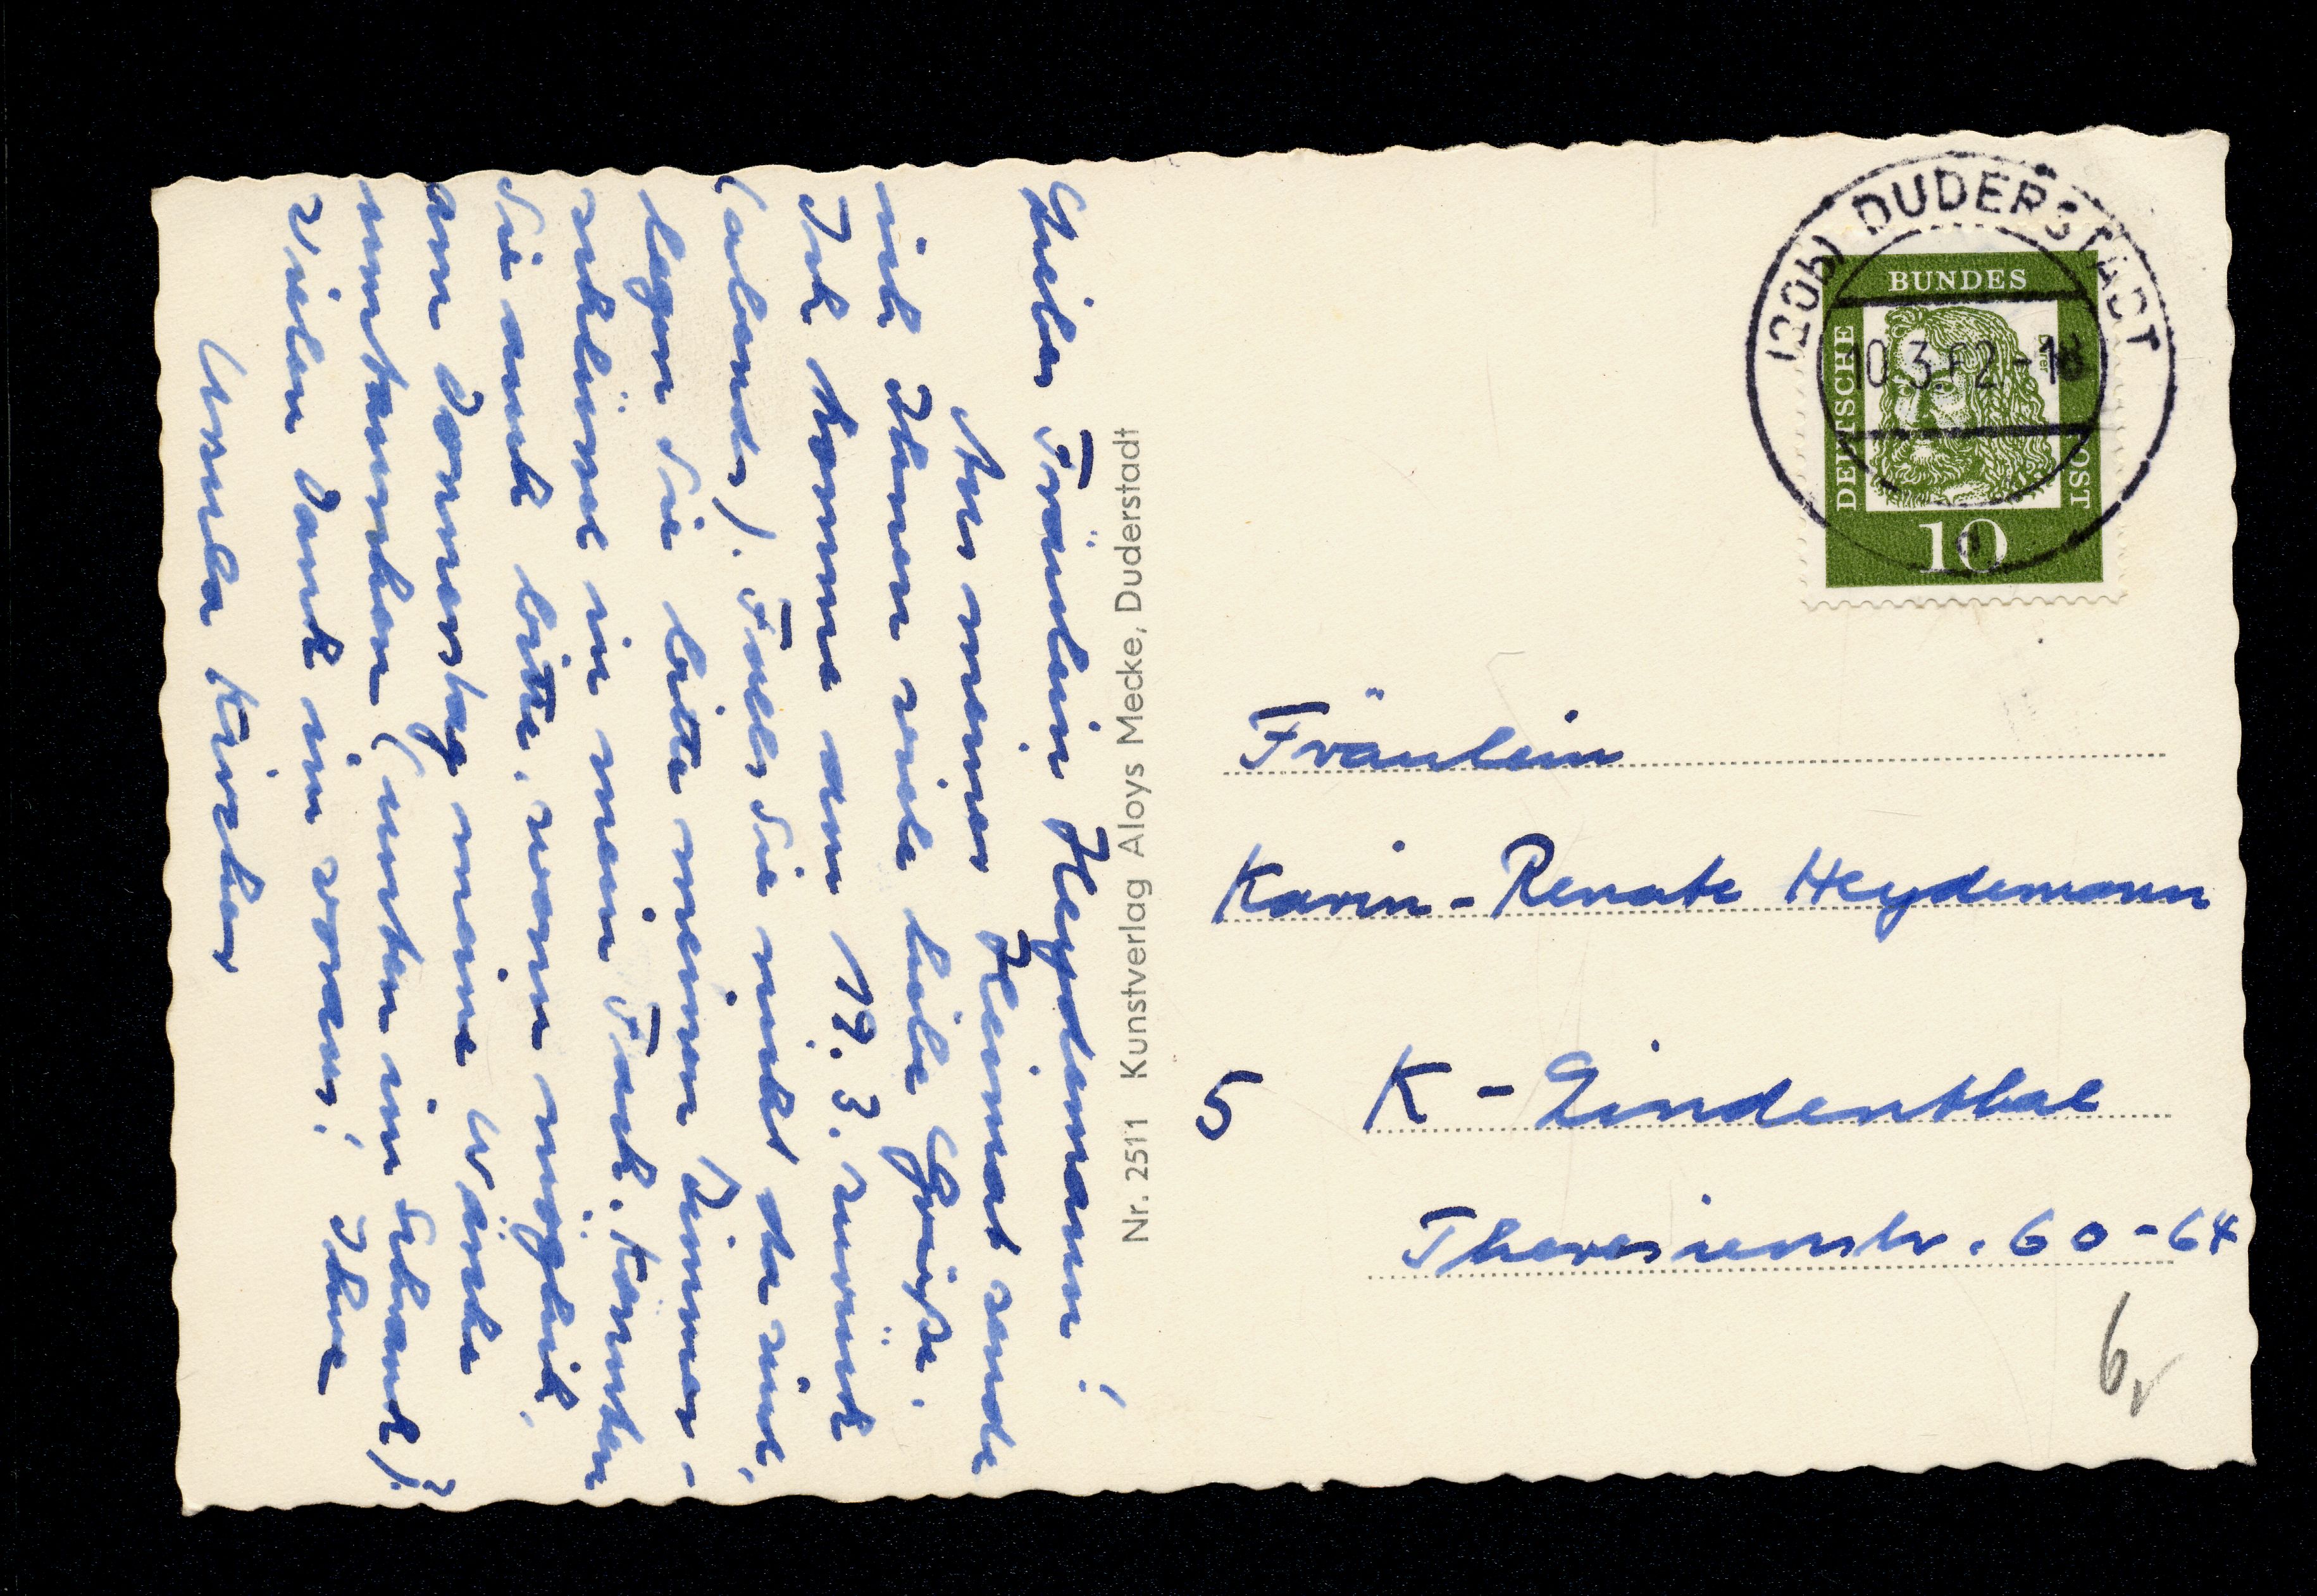 Liebes Fräulein Heydemann!
Aus meiner Heimat sende
ich Ihnen viele liebe Grüße.
Ich komme am 19. 3. zurück
(abends). Falls Sie nicht da sind,
legen Sie bitte meinen Zimmer-
schlüssel in mein Fach. Könnten
Sie auch bitte, wenn möglich,
am Donnerstag meine Wäsche
umtauschen (unten im Schrank)?
Vielen Dank im voraus! Ihre
Ursula Fischer
Nr. 2511 Kunstverlag Aloys Mecke, Duderstadt
(20b) DUDERSTADT
10.3.62-18
DEUTSCHE
BUNDES
POST
Dürer
10
Fräulein
Karin-Renate Heydemann
5 K-Lindenthal
Theresienstr. 60-64